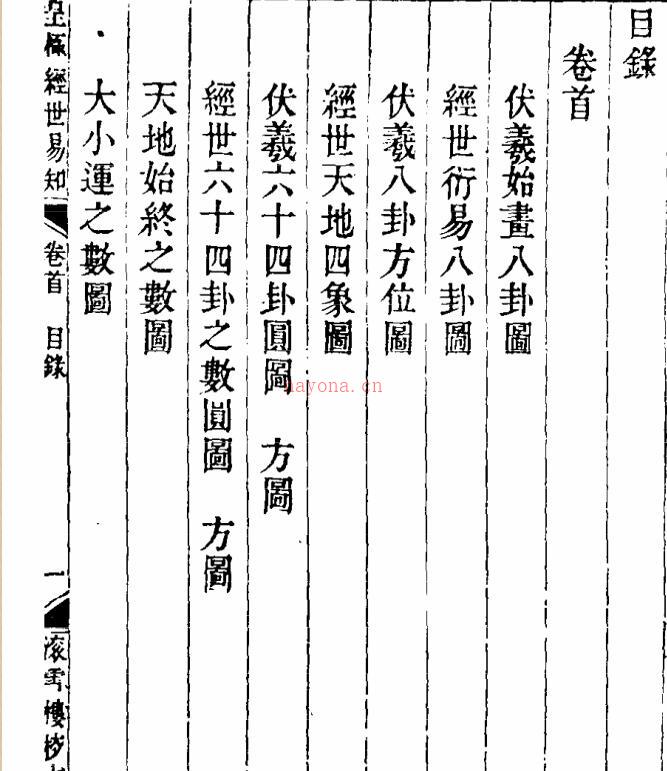 目錄
卷首
伏羲始畫八卦圖
經世衍易八卦圖
伏羲八卦方位圖
經世天地四象圖
伏羲六十四卦圓圖　方圖
經世六十四卦之數圓圖　方圖
天地始終之數圖
大小運之數圖
皇極經世易知　卷首　目錄　一
nayona.cn